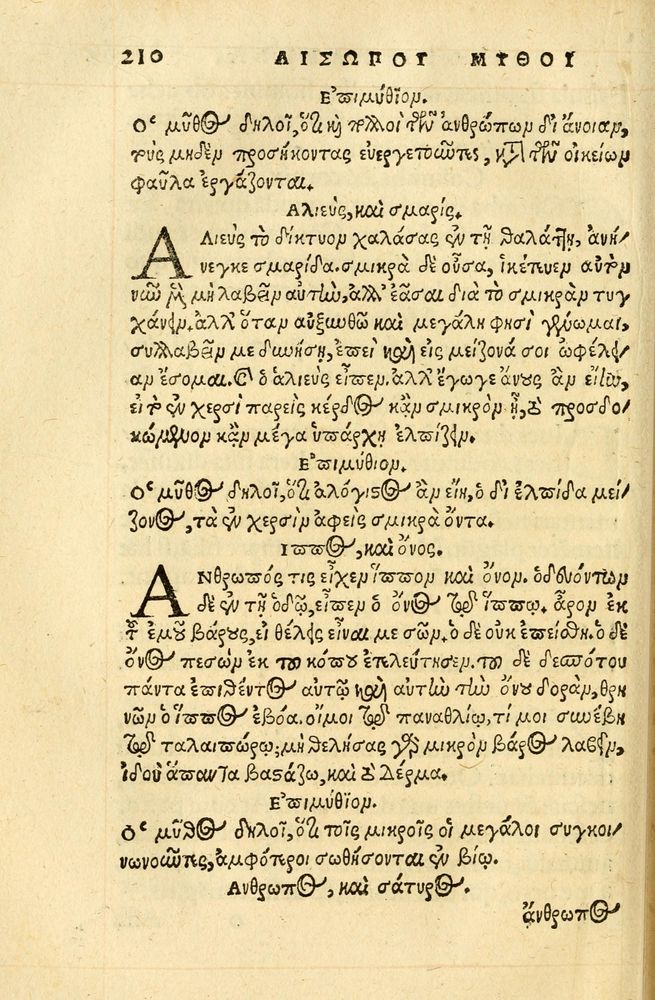 210 ΑΙΣΩΠΟΥ ΜΥΘΟΥ
Επιμύθιον.
Ο μῦθος δηλοῖ, ὅτι καὶ πολλοὶ τῶν ἀνθρώπων δι' ἄνοιαν,
τοὺς μηδὲν προσήκοντας εὐεργετοῦντες, κατὰ τῶν οἰκείων
φαῦλα ἐργάζονται.
Αλιεὺς, καὶ σμαρίς.
ΑΛιεὺς τὸ δίκτυον χαλάσας ἐν τῇ θαλάττῃ, ἀνή/
νεγκε σμαρίδα. σμικρὰ δὲ οὖσα, ἱκέτευεν αὐτὸν
νῦν μὲν μὴ λαβεῖν αὐτὴν, ἀλλ' ἐᾶσαι διὰ τὸ σμικρὰν τυγ
χάνειν. ἀλλ' ὅταν αὐξηθῶ καὶ μεγάλη φησὶ γένωμαι,
συλλαβεῖν με δυνήσῃ, ἐπεὶ καὶ εἰς μείζονά σοι ὠφέλει/
αν ἔσομαι. Καὶ ὁ ἁλιεὺς εἶπεν. ἀλλ' ἔγωγε ἄνους ἂν εἴην,
εἰ τὸ ἐν χερσὶ παρεὶς κέρδος κἂν σμικρὸν ᾖ, τὸ προσδο/
κώμενον κἂν μέγα ὑπάρχῃ ἐλπίζειν.
Επιμύθιον.
Ο μῦθος δηλοῖ, ὅτι ἀλόγιστος ἂν εἴη, ὁ δι' ἐλπίδα μεί/
ζονος, τὰ ἐν χερσὶν ἀφεὶς σμικρὰ ὄντα.
Ιππος, καὶ ὄνος.
ΑΝθρωπός τις εἶχεν ἵππον καὶ ὄνον. ὁδευόντων
δὲ ἐν τῇ ὁδῷ, εἶπεν ὁ ὄνος τῷ ἵππῳ. ἆρον ἐκ
τοῦ ἐμοῦ βάρους, εἰ θέλεις εἶναί με σῶν. ὁ δὲ οὐκ ἐπείσθη. ὁ δὲ
ὄνος πεσὼν ἐκ τοῦ κόπου ἐτελεύτησεν. τοῦ δὲ δεσπότου
πάντα ἐπιθέντος αὐτῷ καὶ αὐτὴν τὴν ὄνου δορὰν, θρη
νῶν ὁ ἵππος ἐβόα. οἴμοι τῷ παναθλίῳ, τί μοι συνέβη
τῷ ταλαιπώρῳ; μὴ θελήσας γὰρ μικρὸν βάρος λαβεῖν,
ἰδοὺ ἅπαντα βαστάζω, καὶ τὸ δέρμα.
Επιμύθιον.
Ο μῦθος δηλοῖ, ὅτι τοῖς μικροῖς οἱ μεγάλοι συγκοι/
νωνοῦντες, ἀμφότεροι σωθήσονται ἐν βίῳ.
Ανθρωπος, καὶ σάτυρος.
ἄνθρωπος